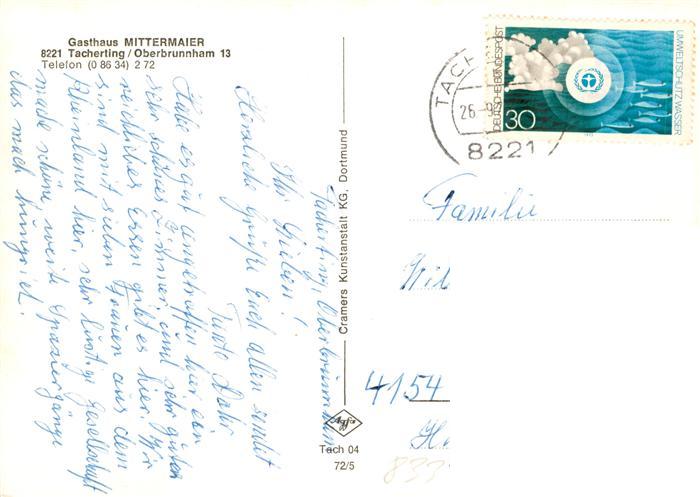 Gasthaus MITTERMAIER
8221 Tacherting / Oberbrunnham 13
Telefon (0 86 34) 2 72
Tacherting, Oberbrunnham
Ihr Lieben!
Habe es gut angetroffen hier ein
sehr schönes Zimmer, und sehr guten
reichliches Essen gibt es hier. Wir
sind mit sieben Frauen aus dem
Rheinland hier, sehr lustige Gesellschaft
mache schöne weite Spaziergänge
das mach hungrich.
Herzliche Grüße Euch allen sendet
Tante
Cramers Kunstanstalt KG, Dortmund
Agfa
Tach 04
72/5
TACH
26.9
8221
DEUTSCHE BUNDESPOST
30
UMWELTSCHUTZ WASSER
Familie
4154
833